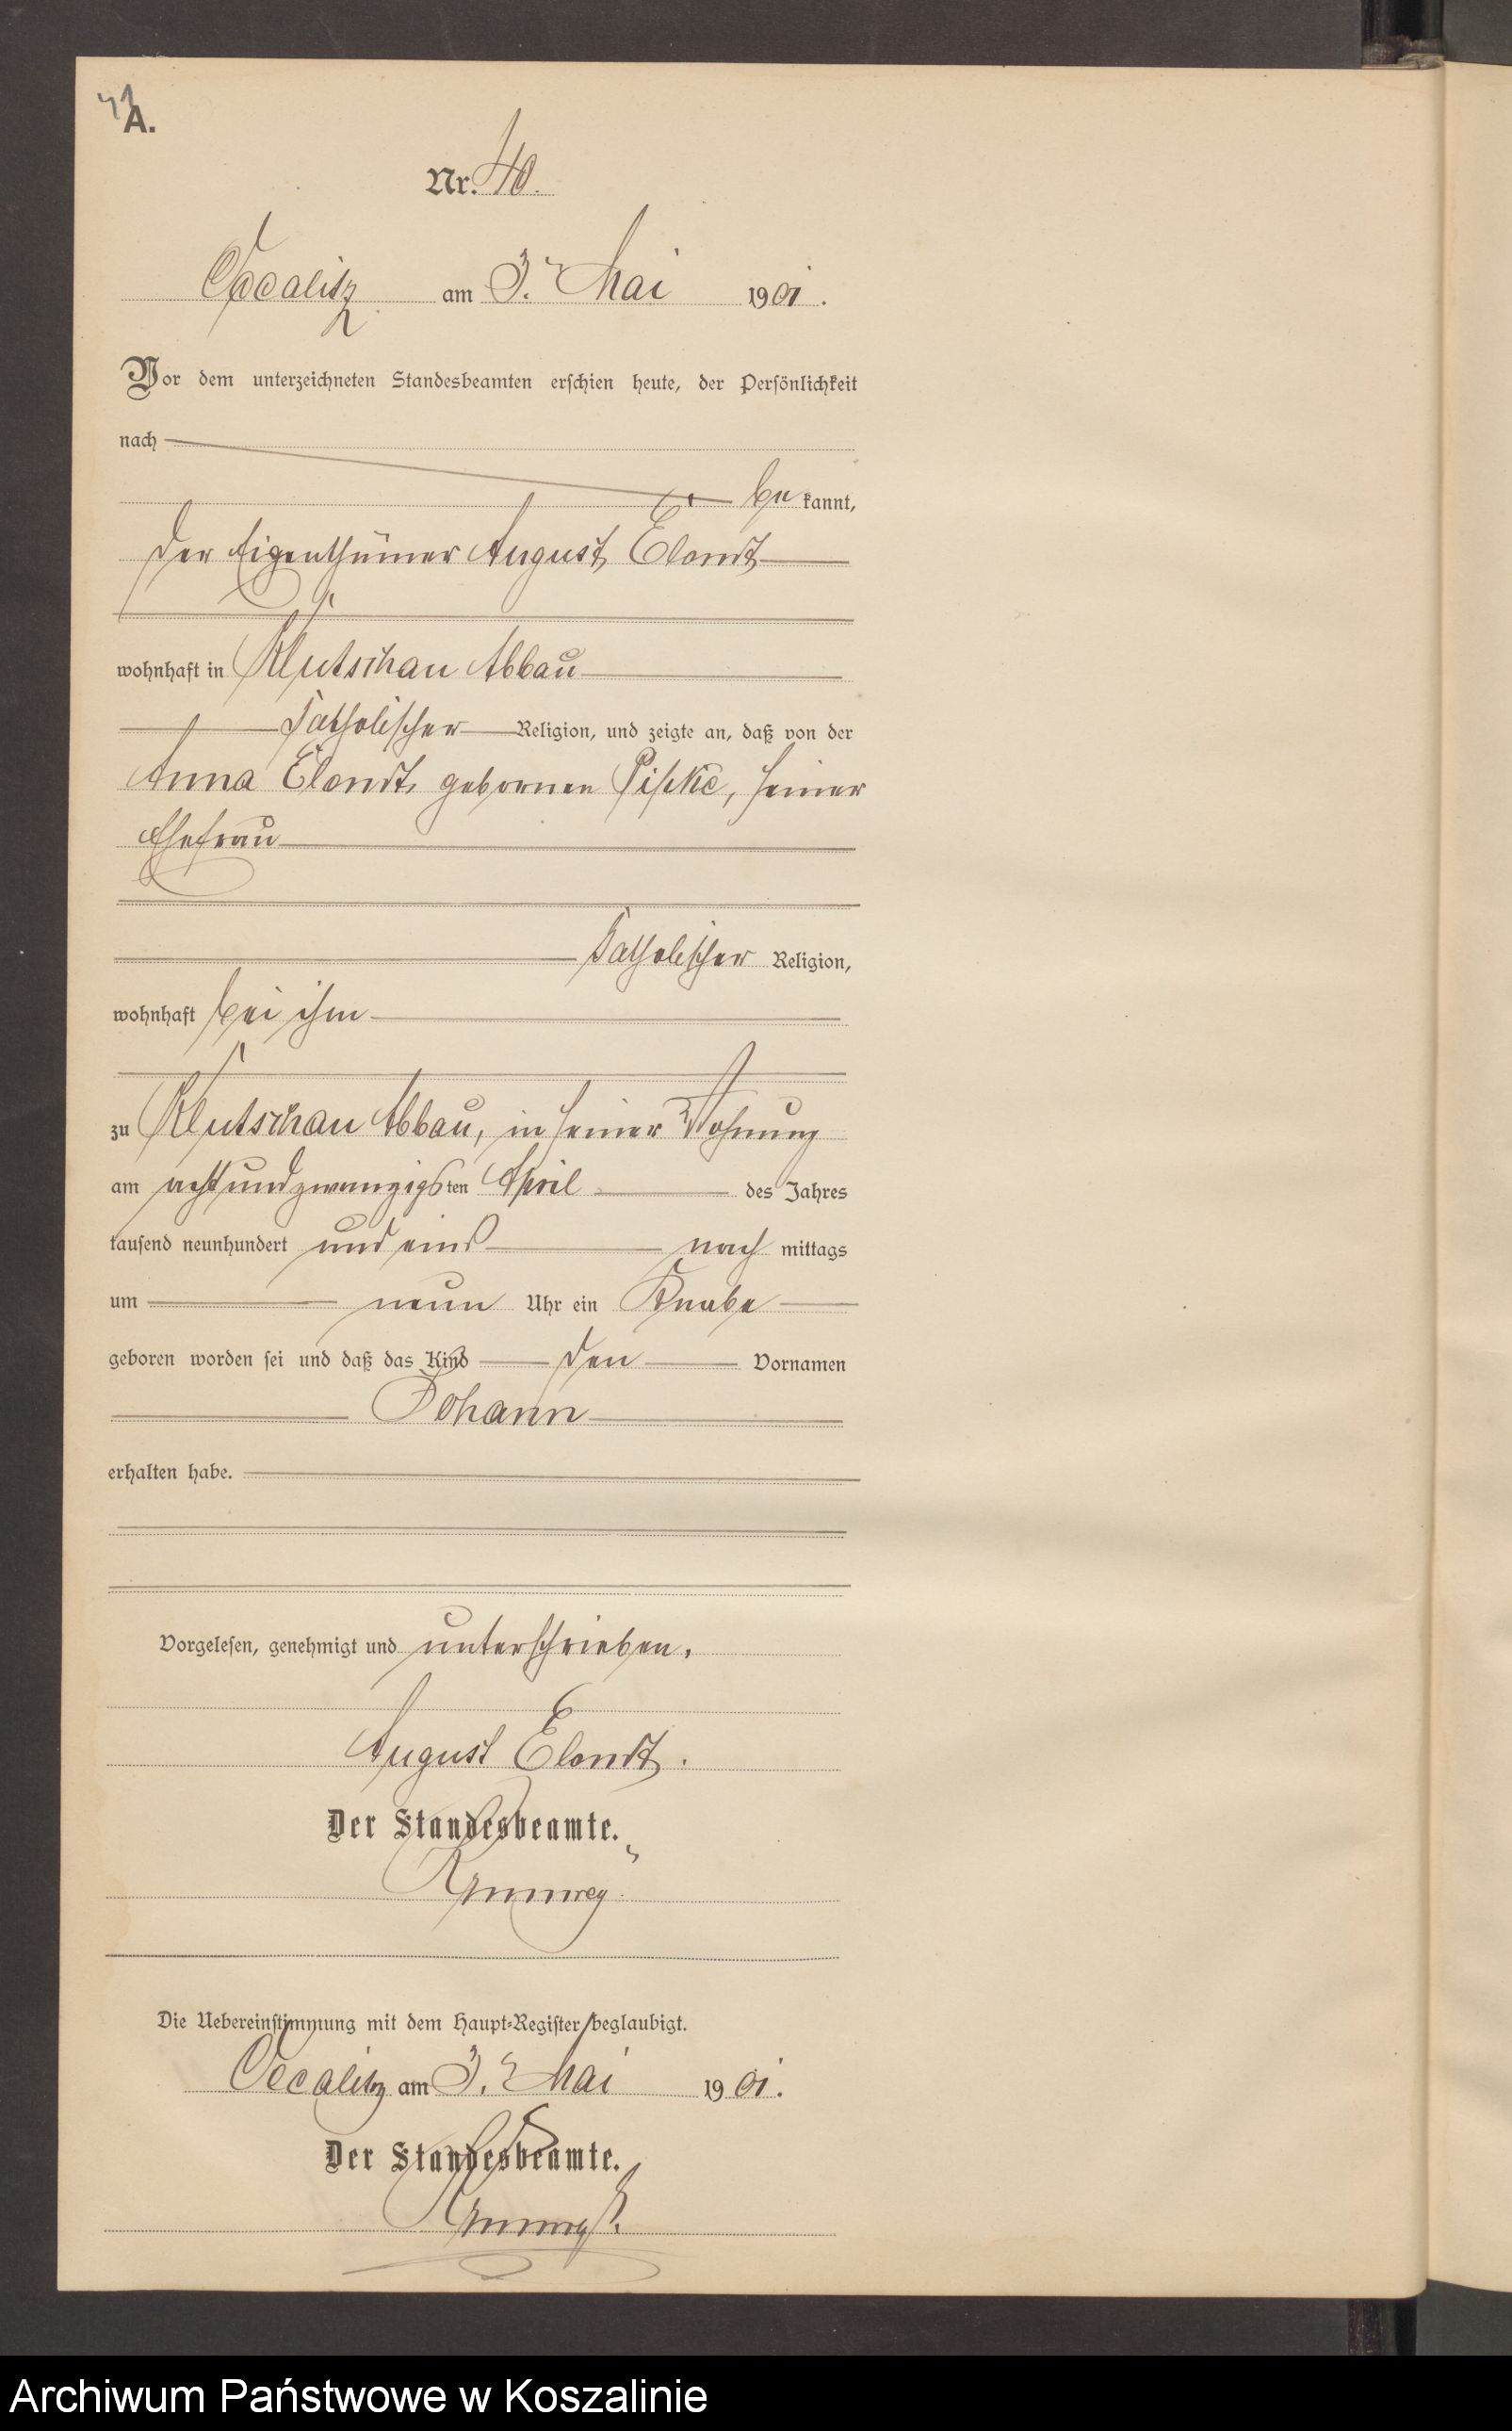 41
A.
Nr. 40.
Occalitz am 3. Mai 1901.
Vor dem unterzeichneten Standesbeamten erschien heute, der Persönlichkeit
nach
be kannt,
der Eigenthümer August Elandt
wohnhaft in Klutschau Abbau
katholischer Religion, und zeigte an, daß von der
Anna Elandt, gebornen Pipke, seiner
Ehefrau
katholischer Religion,
wohnhaft bei ihm
zu Klutschau Abbau, in seiner Wohnung
am acht und zwanzigsten April des Jahres
tausend neunhundert und eins nach mittags
um neun Uhr ein Knabe
geboren worden sei und daß das Kind den Vornamen
Johann
erhalten habe.
Vorgelesen, genehmigt und unterschrieben.
August Elandt.
Der Standesbeamte.
Die Uebereinstimmung mit dem Haupt-Register beglaubigt.
Occalitz am 3. Mai 1901.
Der Standesbeamte.
Archiwum Państwowe w Koszalinie